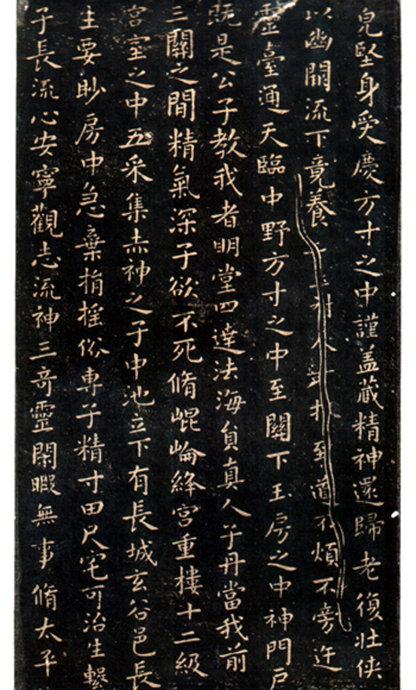 皃堅身受慶方寸之中謹盖藏精神還歸老復壯俠
以幽關流下竟養至道不煩不旁迕
靈臺通天臨中野方寸之中至關下玉房之中神門戶
既是公子教我者明堂四達法海員真人子丹當我前
三關之間精氣深子欲不死脩崐崘絳宮重樓十二級
宮室之中五采集赤神之子中池立下有長城玄谷邑長
生要眇房中急棄捐搖俗專子精寸田尺宅可治生繫
子長流心安寧觀志流神三奇靈閑暇無事脩太平